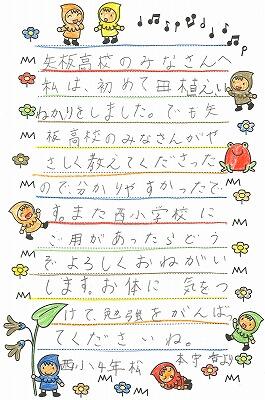 矢板高校のみなさんへ
私は、初めて田植えい
ねかりをしました。でも矢
板高校のみなさんがや
さしく教えてくださった
ので分かりやすかったで
す。また西小学校に
ご用があったらどう
ぞよろしくおねがい
します。お体に気をつ
けて、勉強をがんばっ
てくださいね。
西小4年松
本宇 より